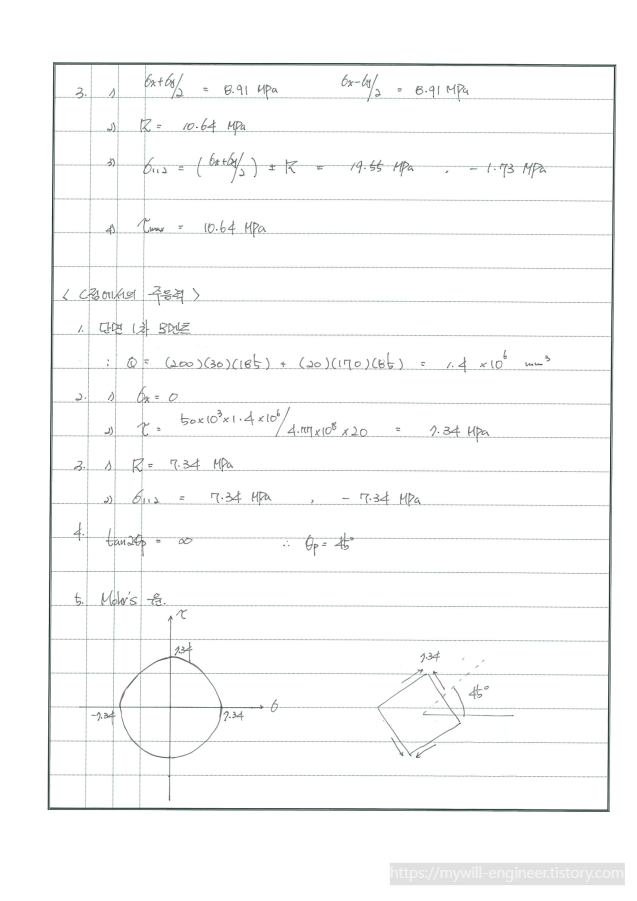 3. 1) σx+σy/2 = 8.91 MPa σx-σy/2 = 8.91 MPa
2) R = 10.64 MPa
3) σ1,2 = (σx+σy/2) ± R = 19.55 MPa , -1.73 MPa
4) τmax = 10.64 MPa
< C점에서의 주응력 >
1. 단면 1차 모멘트
: Q = (200)(30)(185) + (20)(170)(85) = 1.4 ×10⁶ mm³
2. 1) σx = 0
2) τ = 50×10³×1.4×10⁶/4.77×10⁸×20 = 7.34 MPa
3. 1) R = 7.34 MPa
2) σ1,2 = 7.34 MPa , - 7.34 MPa
4. tan2θp = ∞ ∴ θp = 45°
5. Mohr's 원.
τ
7.34
-7.34
7.34
σ
7.34
45°
https://mywill-engineer.tistory.com